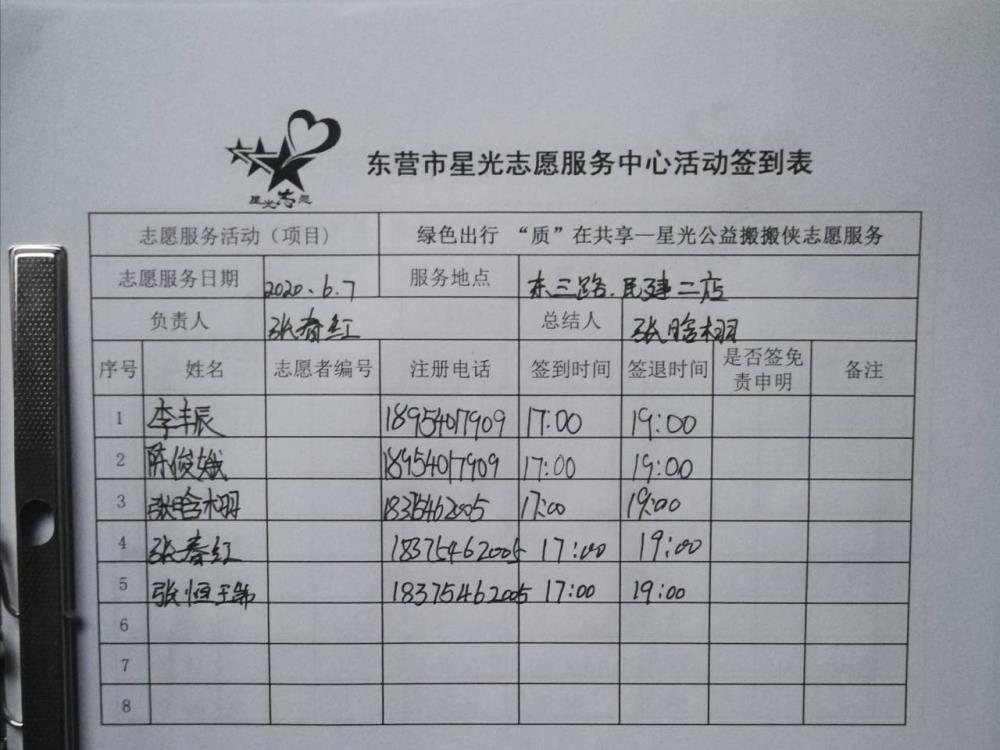 星光志愿
东营市星光志愿服务中心活动签到表
志愿服务活动（项目） 绿色出行 “质”在共享—星光公益搬搬侠志愿服务
志愿服务日期 2020.6.7 服务地点 东三路.民建二店
负责人 张春红 总结人 张晗栩
序号 姓名 志愿者编号 注册电话 签到时间 签退时间 是否签免责申明 备注
1 李丰辰 18954017909 17:00 19:00
2 陈俊娥 18954017909 17:00 19:00
3 张晗栩 18375462005 17:00 19:00
4 张春红 18375462005 17:00 19:00
5 张恒 18375462005 17:00 19:00
6
7
8